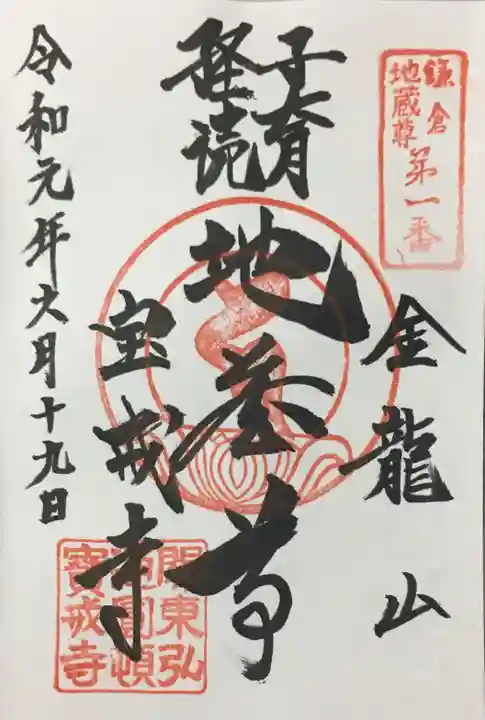 鎌倉
地蔵尊
第一番
金龍山
子育
経読
地蔵尊
宝戒寺
令和元年六月十九日
關東弘
通圓頓
寶戒寺